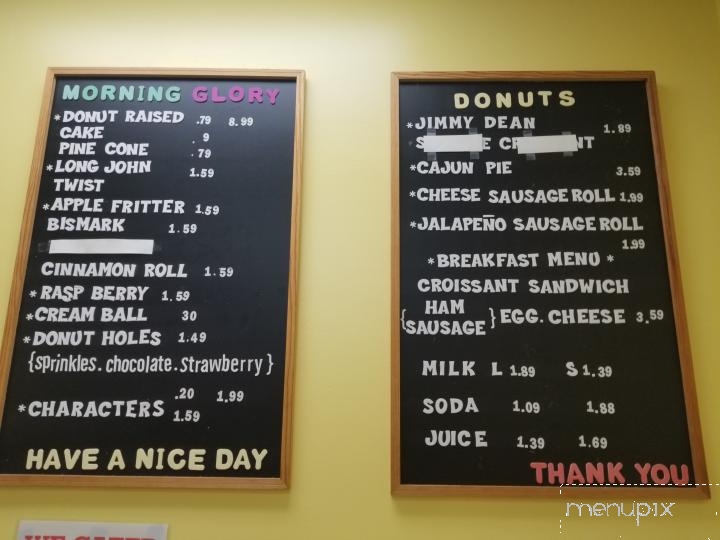 MORNING GLORY
*DONUT RAISED .79 8.99
CAKE .9
PINE CONE .79
*LONG JOHN 1.59
TWIST
*APPLE FRITTER 1.59
BISMARK 1.59
CINNAMON ROLL 1.59
*RASP BERRY 1.59
*CREAM BALL 30
*DONUT HOLES 1.49
{sprinkles.chocolate.strawberry}
.20 1.99
*CHARACTERS 1.59
HAVE A NICE DAY
DONUTS
*JIMMY DEAN 1.89
*CAJUN PIE 3.59
*CHEESE SAUSAGE ROLL 1.99
*JALAPEÑO SAUSAGE ROLL
1.99
*BREAKFAST MENU*
CROISSANT SANDWICH
{HAM
SAUSAGE} EGG. CHEESE 3.59
MILK L 1.89 S 1.39
SODA 1.09 1.88
JUICE 1.39 1.69
THANK YOU
menupix